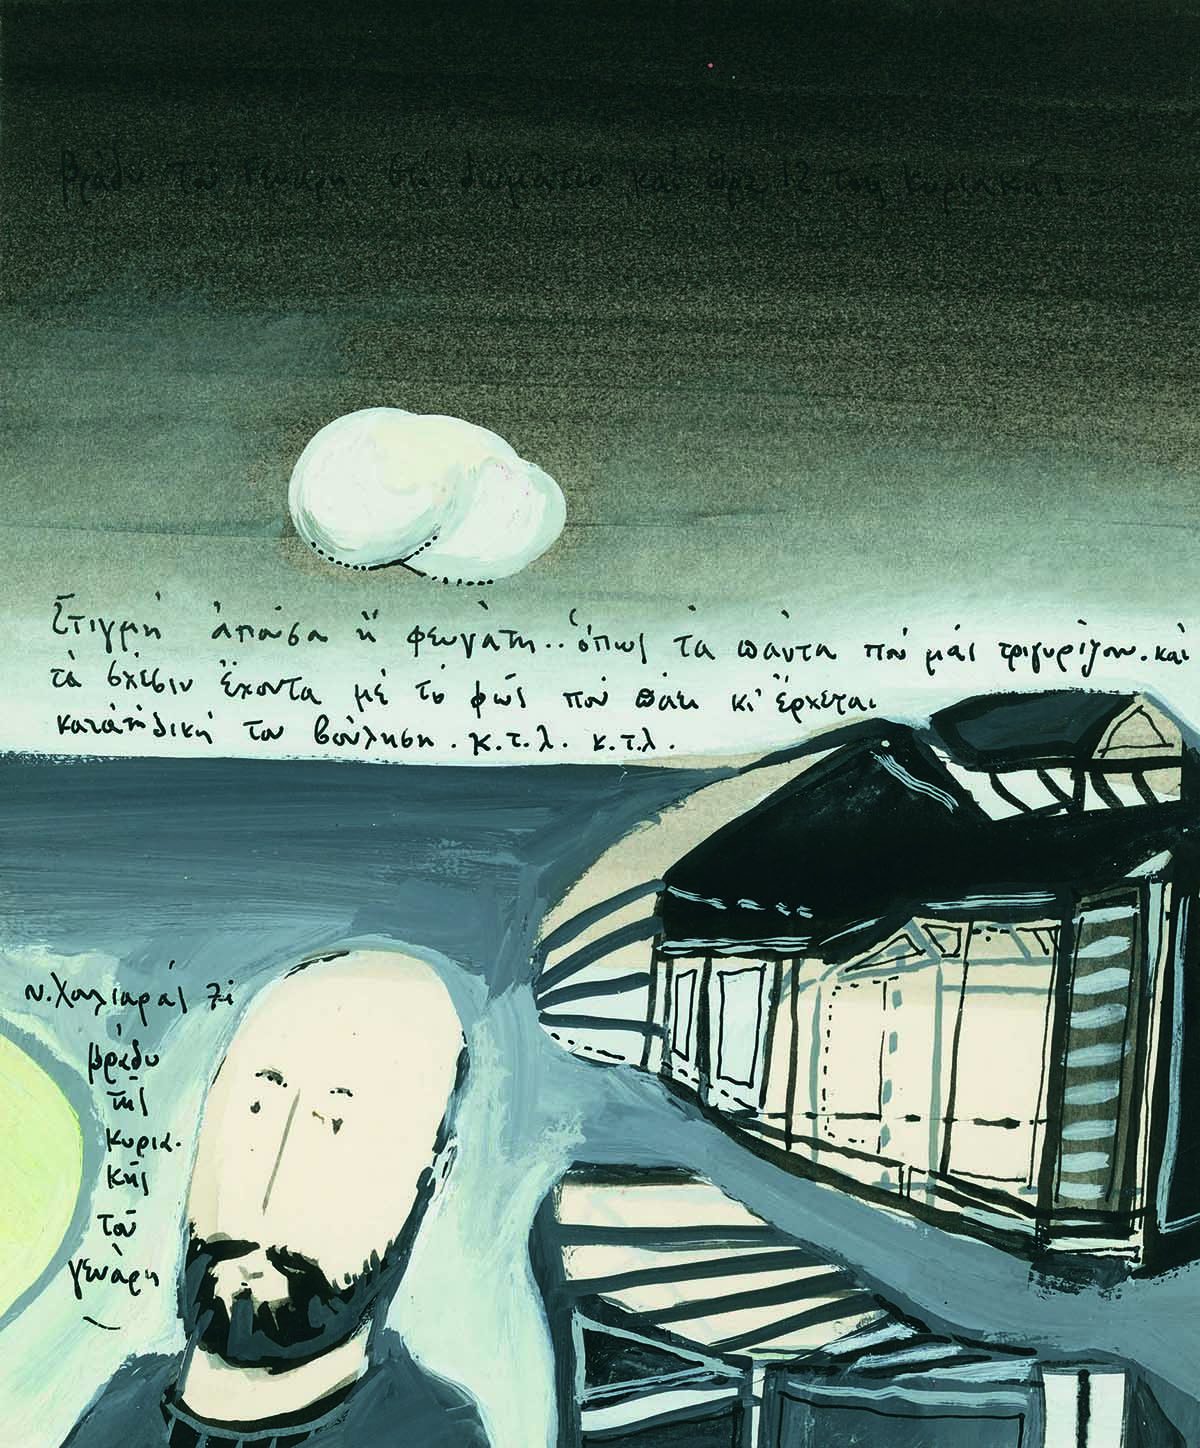 βράδυ τοῦ Γενάρη στὸ δωμάτιο καὶ ὥρα 12 τῆς κυριακῆς
Στιγμὴ ἀποῦσα ἢ φευγάτη.. ὅπως τὰ πάντα ποὺ μᾶς τριγυρίζουν. καὶ
τὰ σχέσιν ἔχοντα μὲ τὸ φῶς ποὺ πάει κι' ἔρχεται
κατὰ τὴ δική του βούληση. κ.τ.λ. κ.τ.λ.
ν. Χαλιαρᾶς 7
βράδυ
τῆς
κυρια.
κῆς
τοῦ
γενάρη